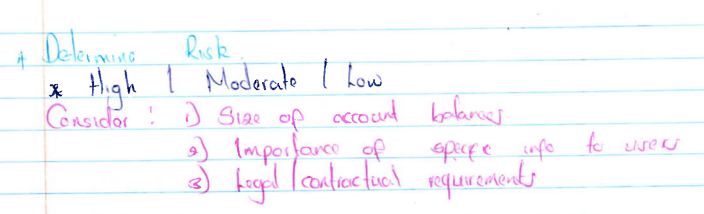 * Determine Risk.
* High | Moderate | Low
Consider : 1) Size of account balances
2) Importance of specific info to users
3) Legal / contractual requirements